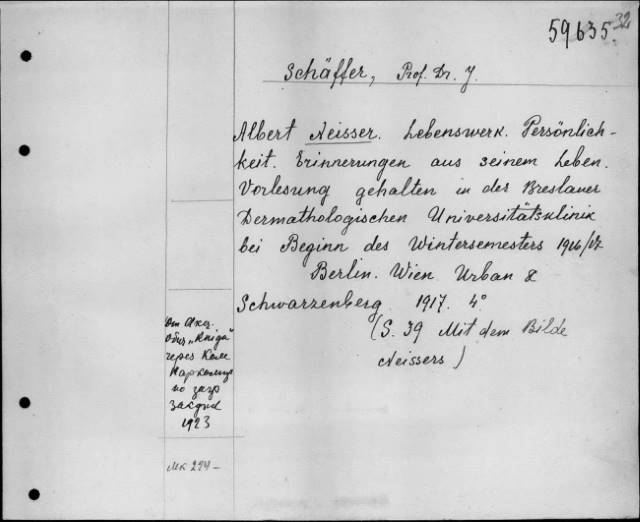 59635 32
Schäffer, Prof. Dr. J.
Albert Neisser. Lebenswerk. Persönlich-
keit. Erinnerungen aus seinem Leben.
Vorlesung gehalten in der Breslauer
Dermathologischen Universitätsklinik
bei Beginn des Wintersemesters 1916/17
Berlin. Wien Urban &
Schwarzenberg 1917. 4°
(S. 39 Mit dem Bilde
Neissers)
От Акц.
Общ. „Книга"
через Ком
Наркомпр
по загр
закупк
1923
Мк 294—